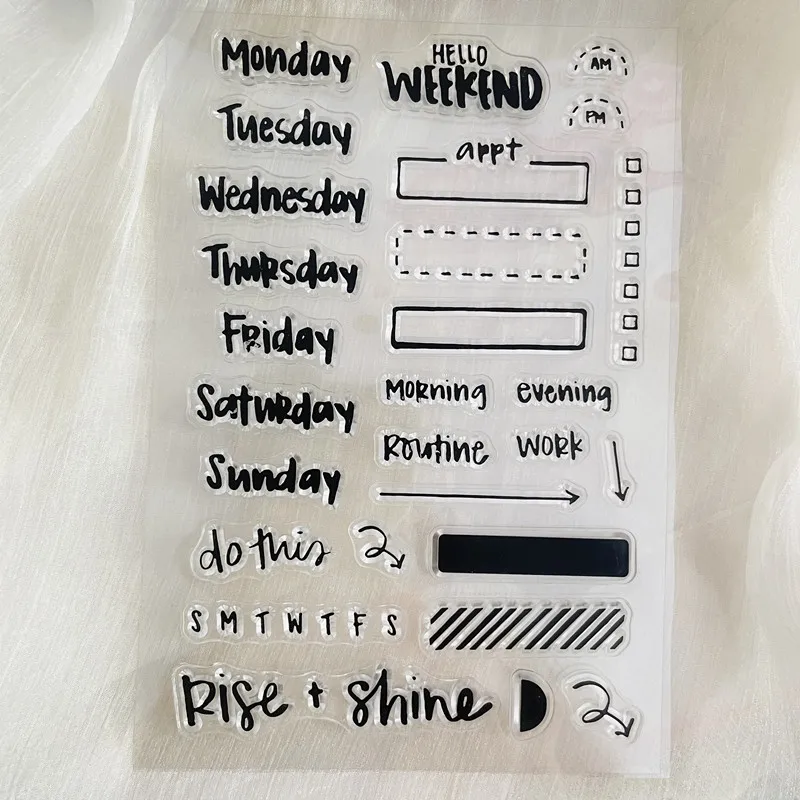 Monday
HELLO
WEEKEND
AM
PM
Tuesday
appt
Wednesday
Thursday
Friday
Saturday
Morning
evening
Routine
WORK
Sunday
do this
S M T W T F S
Rise + Shine